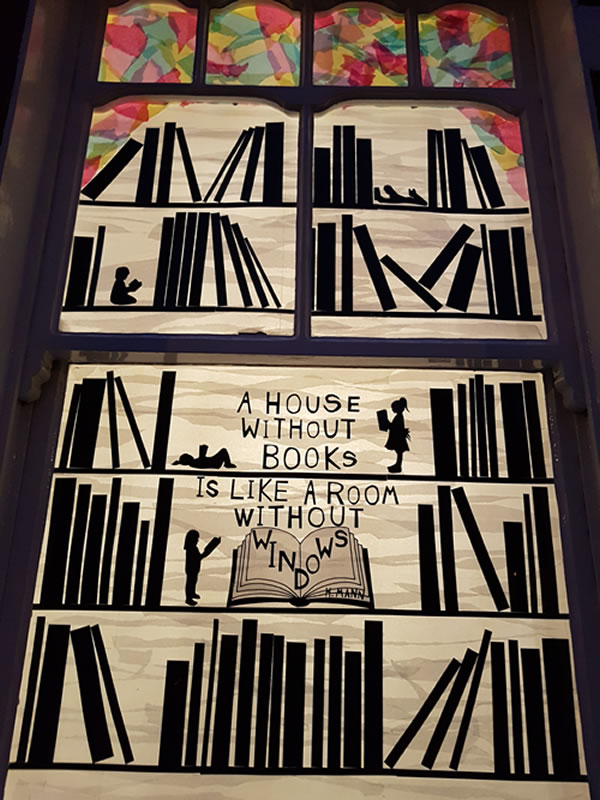 A HOUSE
WITHOUT
BOOKS
IS LIKE A ROOM
WITHOUT
WINDOWS
H. MANN